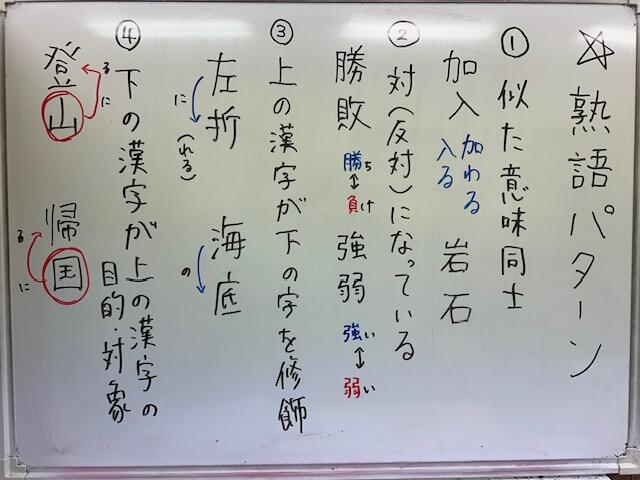 ☆熟語パターン
①似た意味同士
加入 加わる 入る 岩石
②対(反対)になっている
勝敗 勝ち↔負け 強弱 強い↔弱い
③上の漢字が下の字を修飾
左折 に(れる) 海底 の
④下の漢字が上の漢字の
目的・対象
登山 るに 帰国 るに